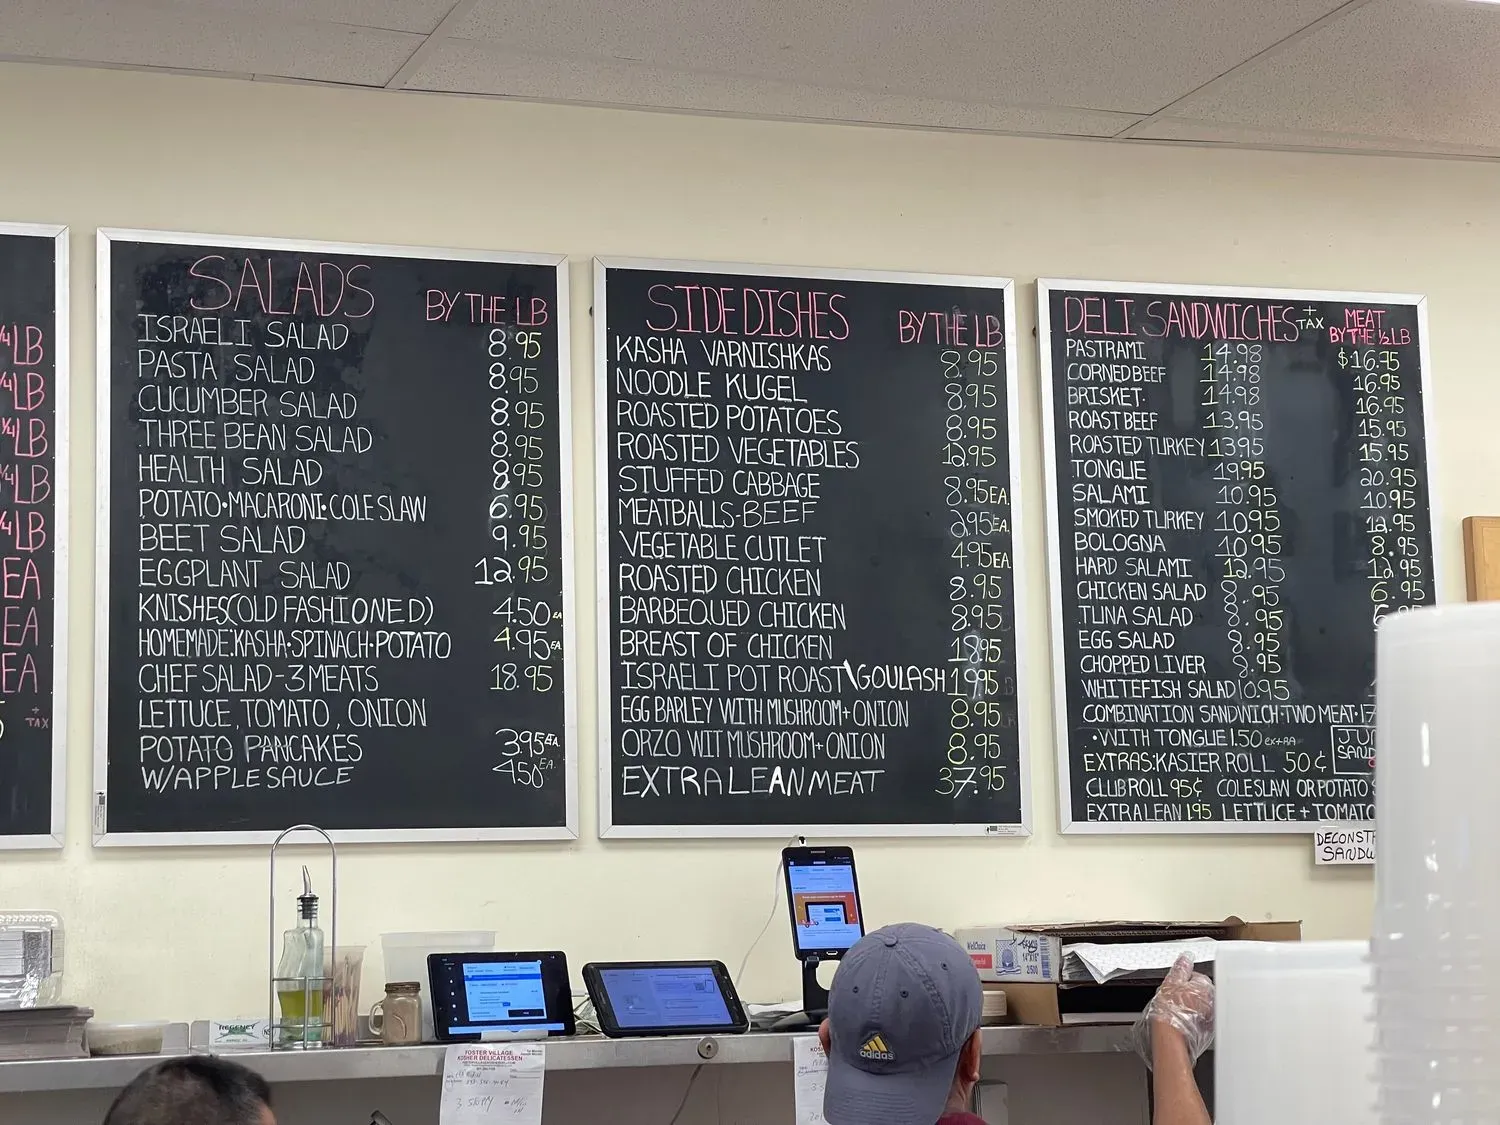 1/4 LB
1/4 LB
1/4 LB
1/4 LB
1/4 LB
EA
EA
EA
+ TAX
SALADS BY THE LB
ISRAELI SALAD 8.95
PASTA SALAD 8.95
CUCUMBER SALAD 8.95
THREE BEAN SALAD 8.95
HEALTH SALAD 8.95
POTATO•MACARONI•COLE SLAW 6.95
BEET SALAD 9.95
EGGPLANT SALAD 12.95
KNISHES(OLD FASHIONED) 4.50 EA
HOMEMADE:KASHA•SPINACH•POTATO 4.95 EA
CHEF SALAD-3 MEATS 18.95
LETTUCE, TOMATO, ONION
POTATO PANCAKES 3.95 EA.
W/APPLESAUCE 4.50 EA.
SIDE DISHES BY THE LB
KASHA VARNISHKAS 8.95
NOODLE KUGEL 8.95
ROASTED POTATOES 8.95
ROASTED VEGETABLES 12.95
STUFFED CABBAGE 8.95 EA.
MEATBALLS-BEEF 2.95 EA.
VEGETABLE CUTLET 4.95 EA
ROASTED CHICKEN 8.95
BARBEQUED CHICKEN 8.95
BREAST OF CHICKEN 18.95
ISRAELI POT ROAST\GOULASH 19.95
EGG BARLEY WITH MUSHROOM+ONION 8.95
ORZO WIT MUSHROOM+ONION 8.95
EXTRA LEAN MEAT 37.95
DELI SANDWICHES + TAX MEAT BY THE 1/2 LB
PASTRAMI 14.98 $16.95
CORNED BEEF 14.98 16.95
BRISKET 14.98 16.95
ROAST BEEF 13.95 15.95
ROASTED TURKEY 13.95 15.95
TONGUE 19.95 20.95
SALAMI 10.95 10.95
SMOKED TURKEY 10.95 12.95
BOLOGNA 10.95 8.95
HARD SALAMI 12.95 12.95
CHICKEN SALAD 8.95 6.95
TUNA SALAD 8.95
EGG SALAD 8.95
CHOPPED LIVER 8.95
WHITEFISH SALAD 10.95
COMBINATION SANDWICH•TWO MEAT•17
•WITH TONGUE 1.50 extra
EXTRAS:KASIER ROLL 50¢
CLUB ROLL 95¢ COLESLAW OR POTATO
EXTRA LEAN 1.95 LETTUCE + TOMATO
DECONST
SANDW
WellChoice
14"X16"
2/500
REGENCY
FOSTER VILLAGE
KOSHER DELICATESSEN
adidas